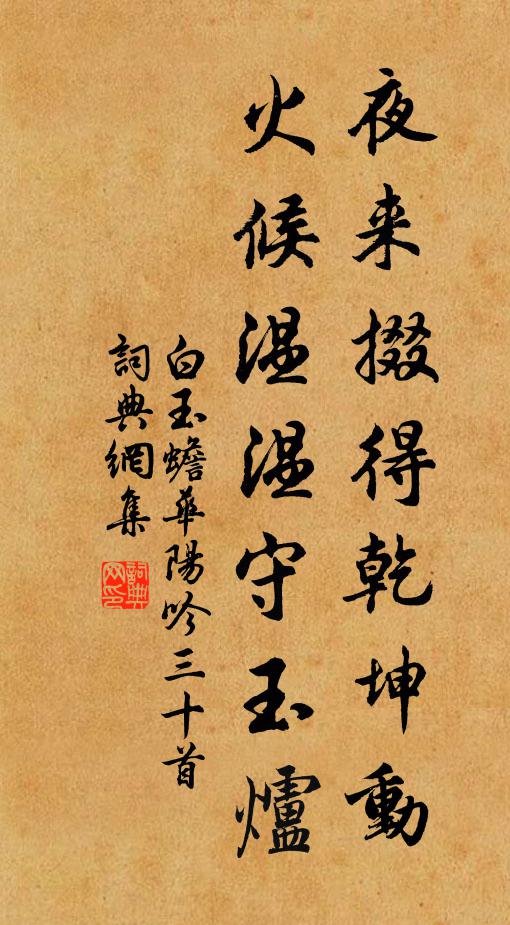 夜来掇得乾坤動
火候温温守玉爐
白玉蟾華陽吟三十首
詞典網集
詞典網印